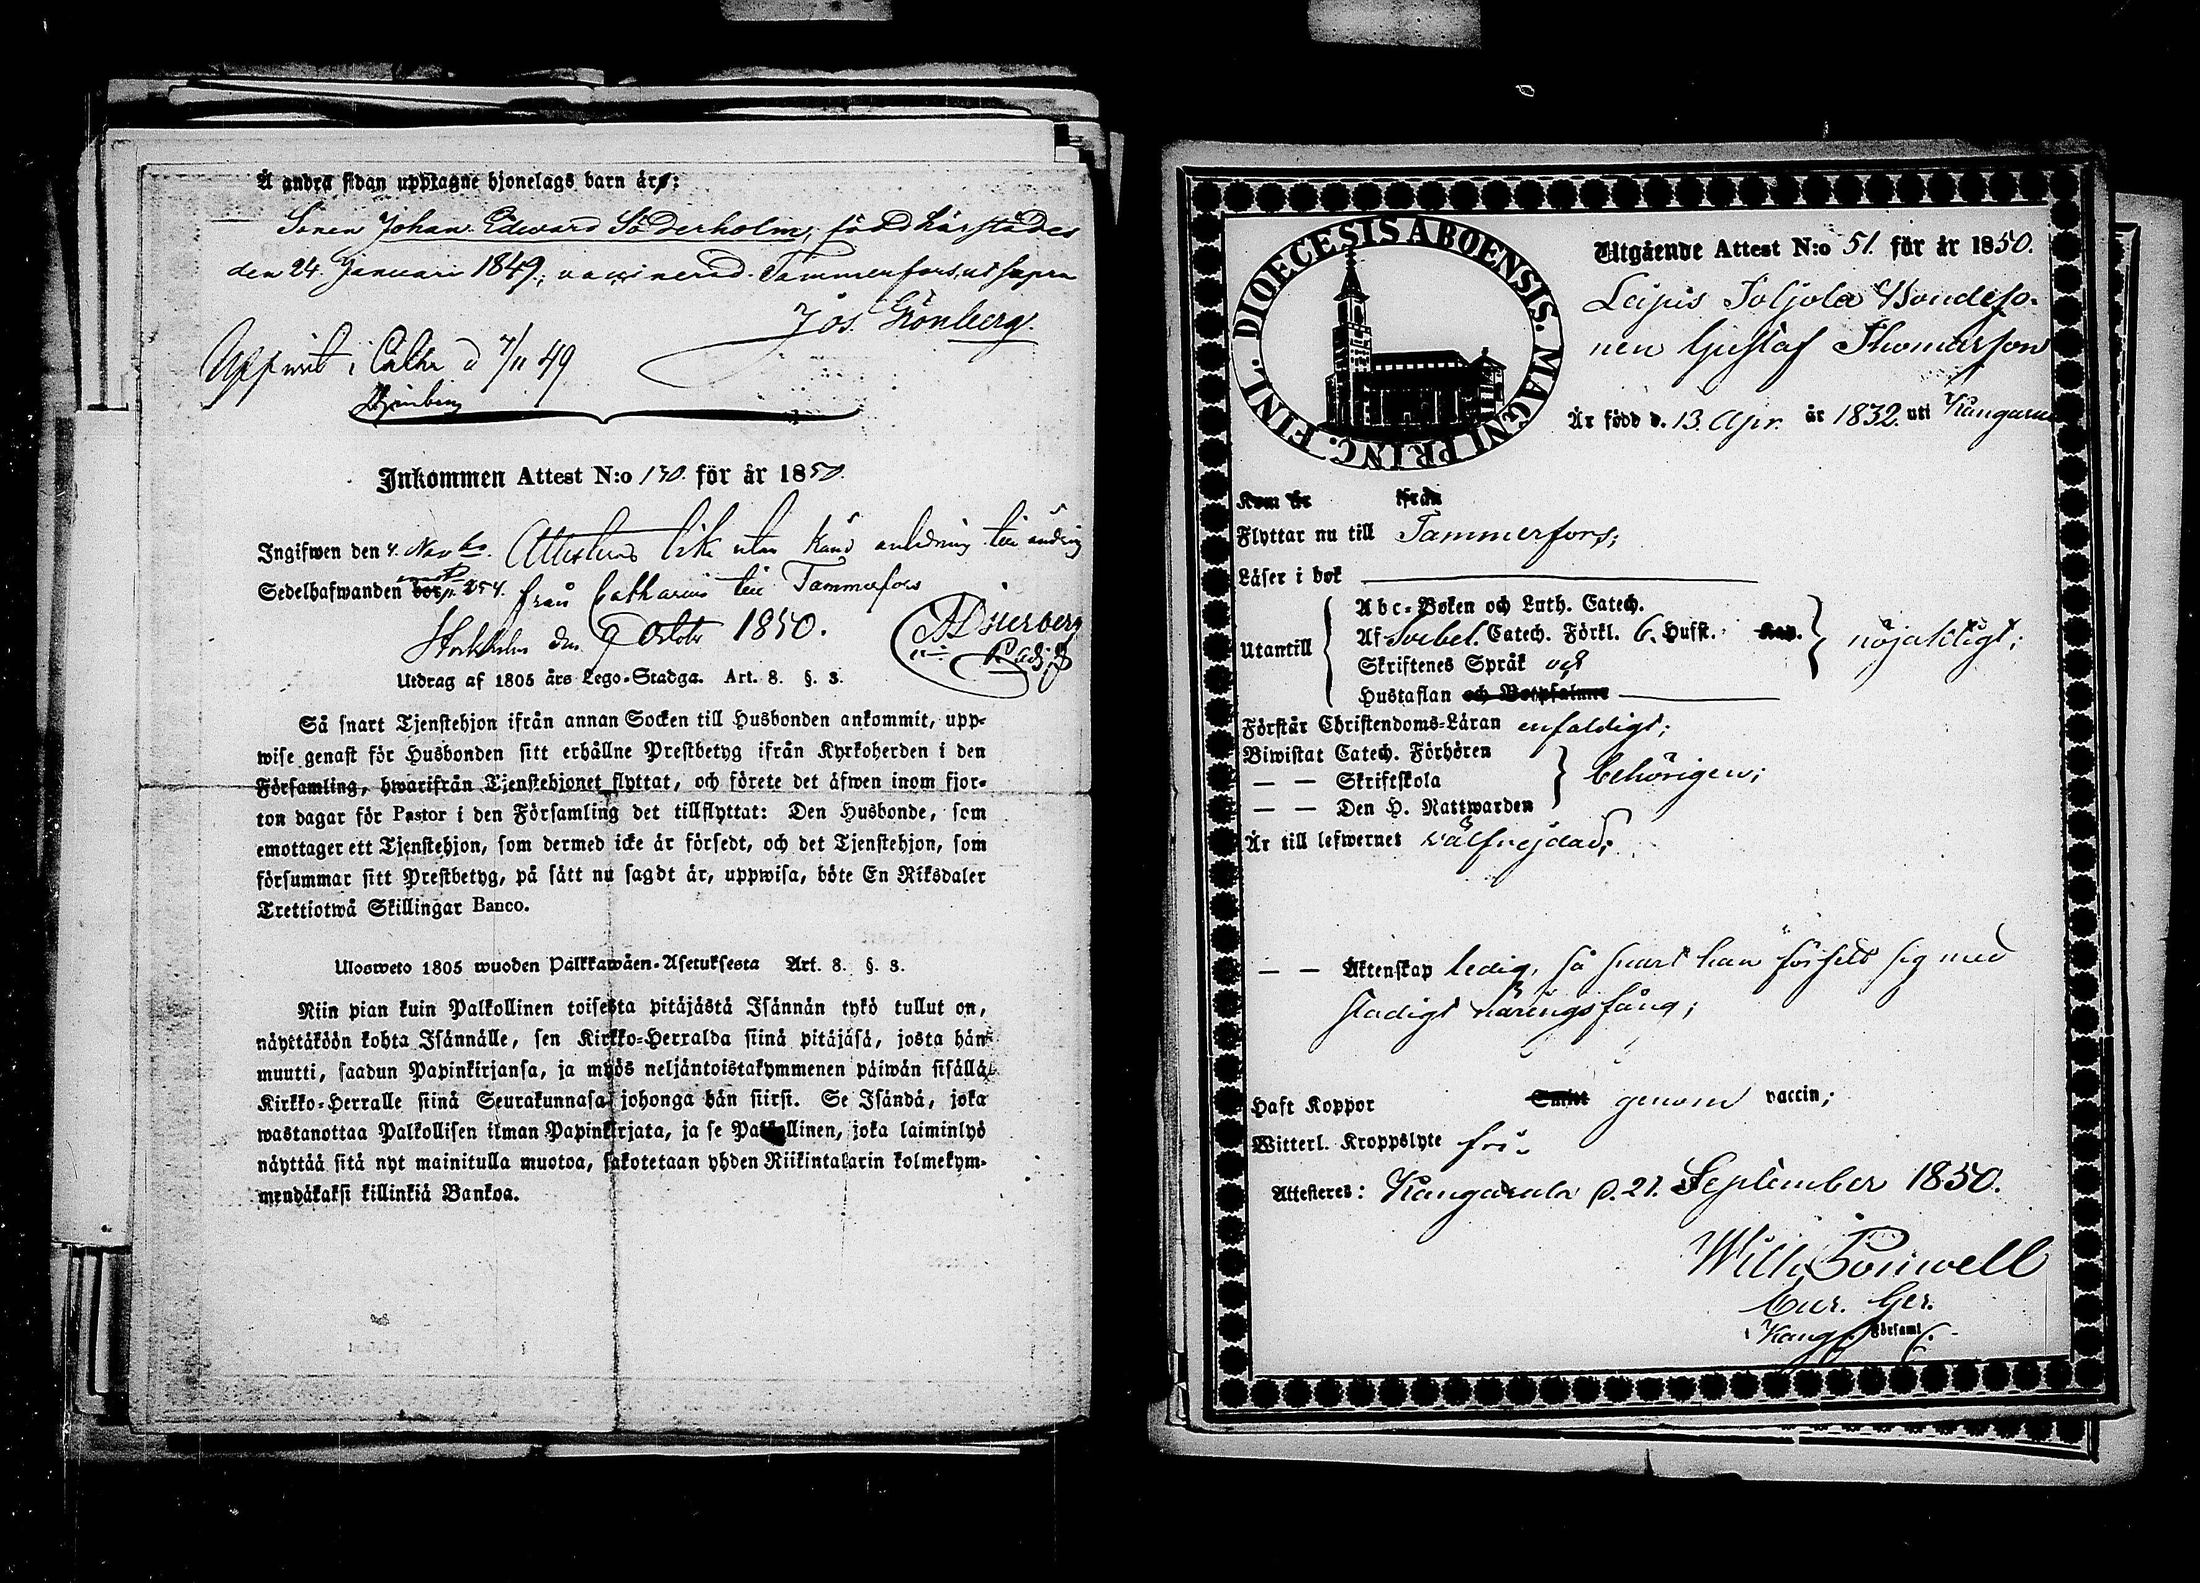 Å andra sidan upptagne hjonelags barn äro:
Sonen Johan Edward Söderholm, född härstädes
den 24 Januari 1849, vaccinerad. Tammerfors, ut supra
Jos. Grönberg.
Uppvist i Cathr d 7/11 49
Inkommen Attest N:o 130. för år 1850.
Ingifwen den 4 Novbr. Attesten utan känd anledning till ändring
Sedelhafwanden bor p. 254. från Catharina till Tammerfors
Stockholm den 9 Octobr 1850.
Utdrag af 1805 års Lego-Stadga. Art. 8. §. 3.
Så snart Tjenstehjon ifrån annan Socken till Husbonden ankommit, upp-
wise genast för Husbonden sitt erhållne Prestbetyg ifrån Kyrkoherden i den
Församling, hwarifrån Tjenstehjonet flyttat, och förete det äfwen inom fjor-
ton dagar för Pastor i den Församling det tillflyttat: Den Husbonde, som
emottager ett Tjenstehjon, som dermed icke är försedt, och det Tjenstehjon, som
försummar sitt Prestbetyg, på sätt nu sagdt är, uppwisa, böte En Riksdaler
Trettiotwå Skillingar Banco.
Ulosweto 1805 wuoden Palkkawäen-Asetuksesta Art. 8. §. 3.
Niin pian kuin Palkollinen toisesta pitäjästä Isännän tykö tullut on,
näyttäköön kohta Isännälle, sen Kirkko-Herralda siinä pitäjäsä, josta hän
muutti, saadun Papinkirjansa, ja myös neljäntoistakymmenen päiwän sisällä
Kirkko-Herralle siinä Seurakunnasa johonga hän siirsi. Se Isändä, joka
wastanottaa Palkollisen ilman Papinkirjata, ja se Palkollinen, joka laiminlyö
näyttää sitä nyt mainitulla muotoa, sakotetaan yhden Riikintalarin kolmekym-
mendäkaksi killinkiä Bankoa.
DIOECESIS ABOENSIS. MAGNI PRINC. FINL.
Utgående Attest N:o 51. för år 1850.
Leipis Toljola Bondeso-
nen Gustaf Thomasson
Är född d. 13. Apr. år 1832. uti Kangasala
Kom år ifrån
Flyttar nu till Tammerfors;
Läser i bok
Utantill
Abc-Boken och Luth. Catech.
Af Svebel. Catech. Förkl. 6. Hufst. Kap. nöjaktigt;
Skriftenes Språk och
Hustaflan och Botpsalmne
Förstår Christendoms-Läran enfaldigt;
Biwistat Catech. Förhören
— — Skriftskola behörigen;
— — Den H. Nattwarden
Är till lefwernet välfrejdad;
— — Äktenskap ledig, så snart han försett sig med
stadigt näringsfång;
Haft Koppor Smitt genom vaccin;
Witterl. Kroppslyte fri.
Attesteres: Kangasala d. 21. September 1850.
Wilh. Poniwell
Cur. Ger.
Kang. Församl.